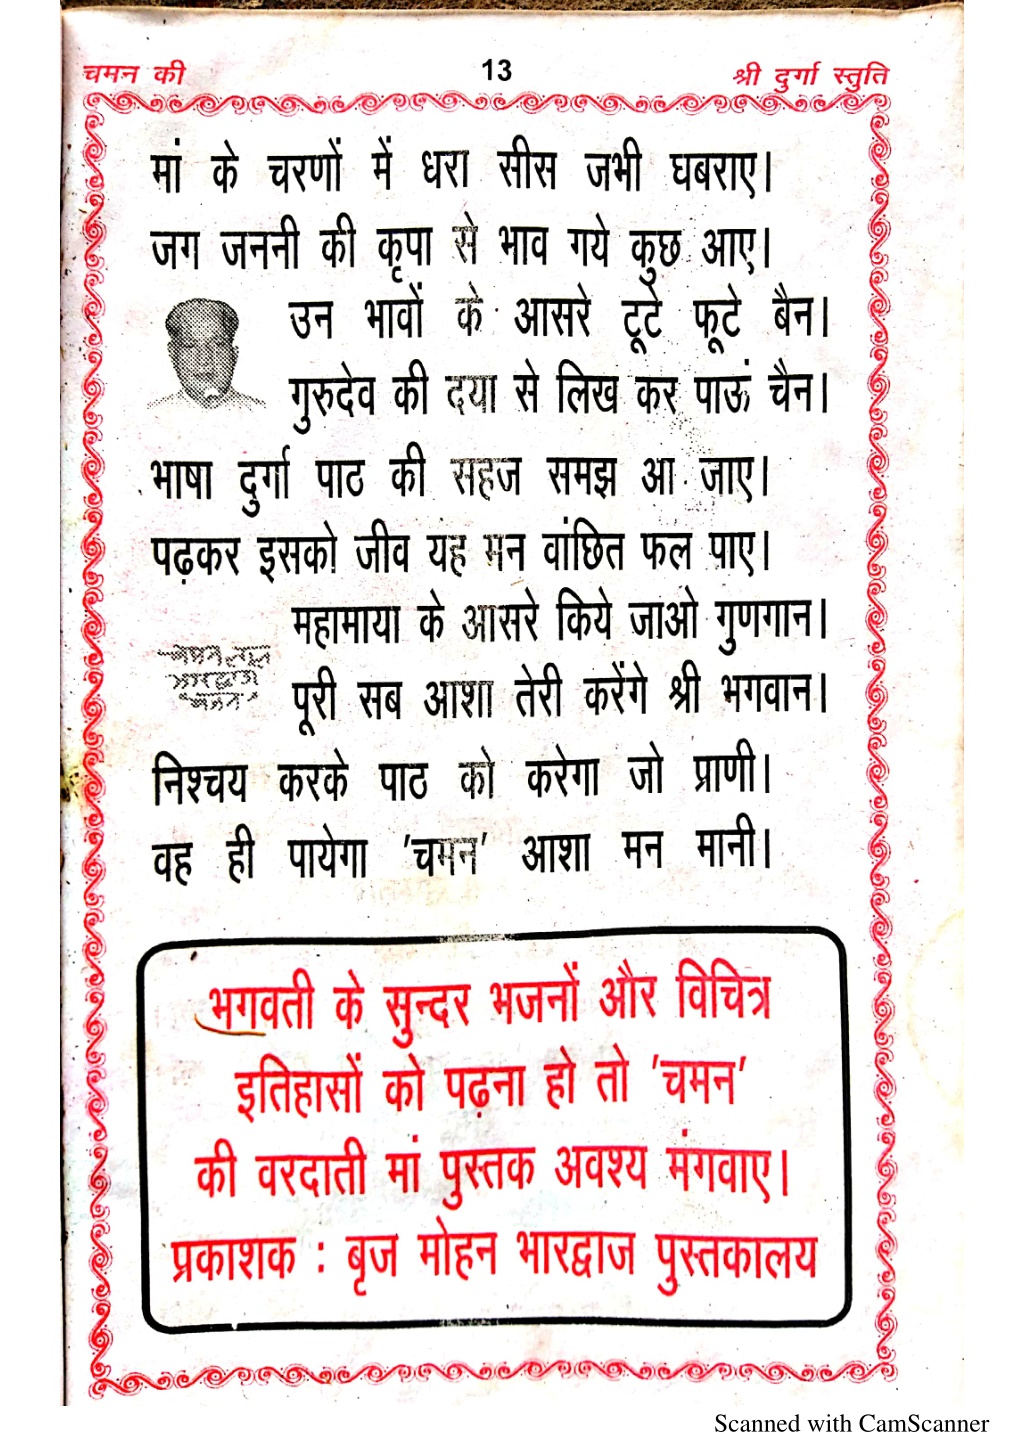 चमन की
13
श्री दुर्गा स्तुति
मां के चरणों में धरा सीस जभी घबराए।
जग जननी की कृपा से भाव गये कुछ आए।
उन भावों के आसरे टूटे फूटे बैन।
गुरुदेव की दया से लिख कर पाऊं चैन।
भाषा दुर्गा पाठ की सहज समझ आ जाए।
पढ़कर इसको जीव यह मन वांछित फल पाए।
महामाया के आसरे किये जाओ गुणगान।
चमन लाल
भारद्वाज
चमन
पूरी सब आशा तेरी करेंगे श्री भगवान।
निश्चय करके पाठ को करेगा जो प्राणी।
वह ही पायेगा 'चमन' आशा मन मानी।
भगवती के सुन्दर भजनों और विचित्र
इतिहासों को पढ़ना हो तो 'चमन'
की वरदाती मां पुस्तक अवश्य मंगवाए।
प्रकाशक : बृज मोहन भारद्वाज पुस्तकालय
Scanned with CamScanner